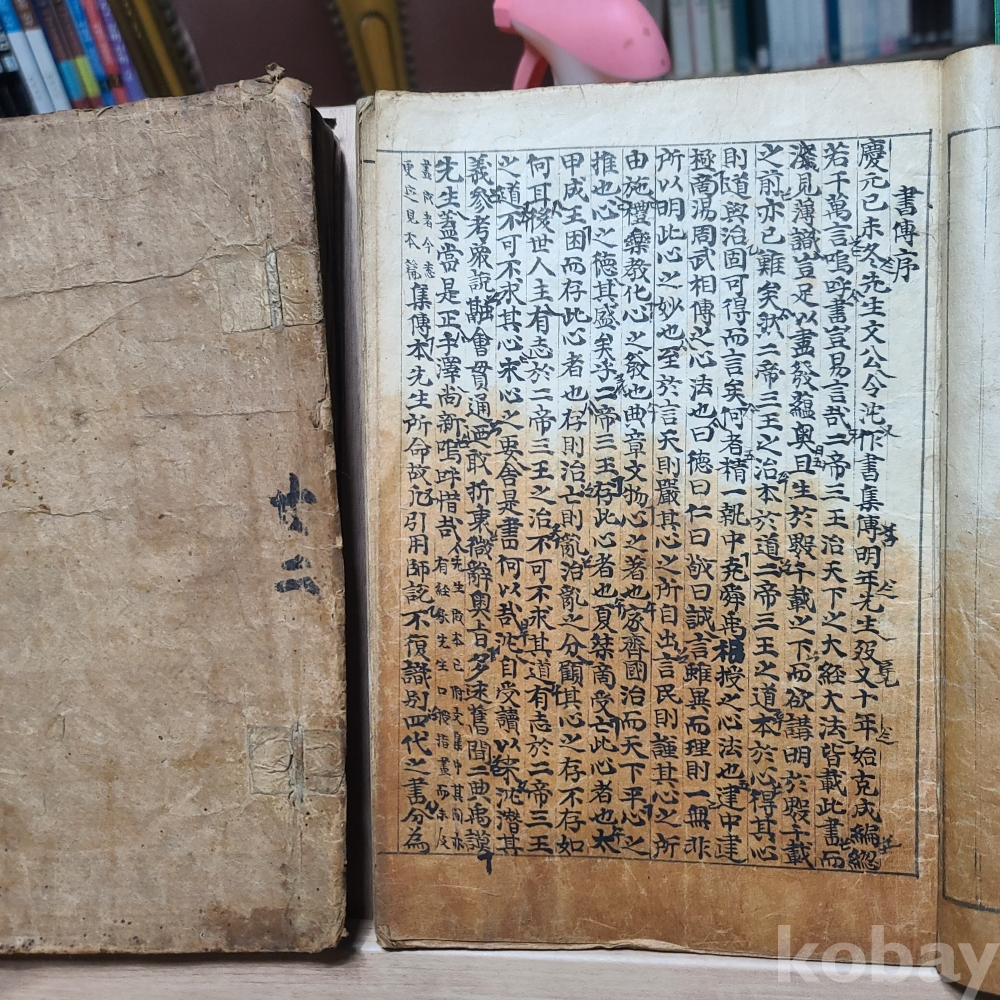 書傳序
慶元己未冬先生文公令沈作書集傳明年先生歿又十年始克成編緫
若千萬言嗚呼書豈易言哉二帝三王治天下之大經大法皆載此書而
淺見薄識豈足以盡發蘊奥且生於數千載之下而欲講明於數千載
之前亦已難矣然二帝三王之治本於道二帝三王之道本於心得其心
則道與治固可得而言矣何者精一執中堯舜禹相授之心法也建中建
極商湯周武相傳之心法也曰德曰仁曰敬曰誠言雖異而理則一無非
所以明此心之妙也至於言天則嚴其心之所自出言民則謹其心之所
由施禮樂教化心之發也典章文物心之著也家齊國治而天下平心之
推也心之德其盛矣乎二帝三王存此心者也夏桀商受亡此心者也太
甲成王困而存此心者也存則治亡則亂治亂之分顧其心之存不存如
何耳後世人主有志於二帝三王之治不可不求其道有志於二帝三王
之道不可不求其心求心之要舍是書何以哉沈自受讀以來沈潛其
義參考衆說融會貫通廼敢折衷微辭奥旨多述舊聞二典禹謨
先生蓋嘗是正手澤尚新嗚呼惜哉先生改本已附文集中其間亦有經承先生口授指畫而未及
盡改者今悉更定見本篇集傳本先生所命故凡引用師說不復識別四代之書分為
kobay